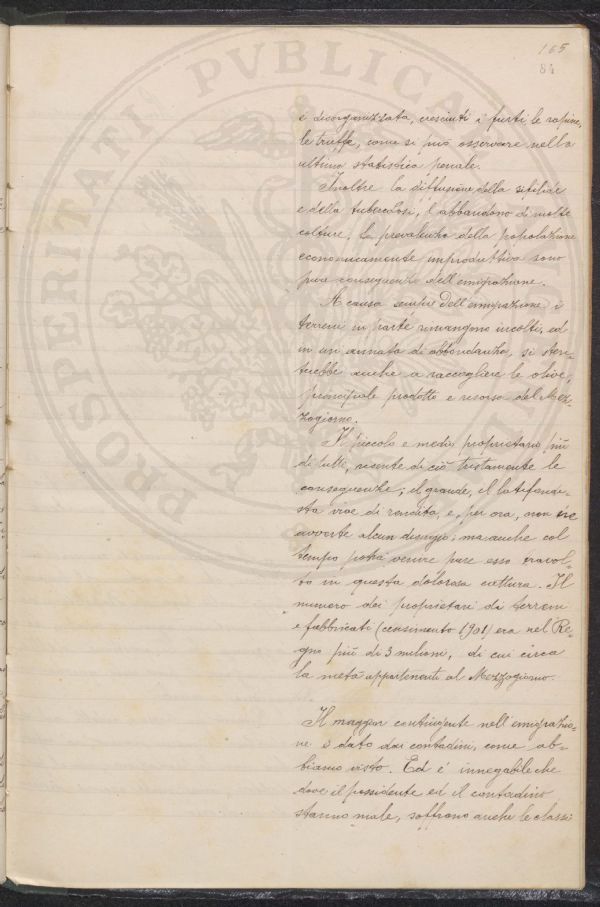 165
84
è disorganizzata, cresciuti i furti le rapine,
le truffe, come si può osservare nella
ultima statistica penale.
Inoltre la diffusione della sifilide
e della tubercolosi, l'abbandono di molte
colture, la prevalenza della popolazione
economicamente improduttiva sono
pure conseguenze dell'emigrazione.
A causa sempre dell'emigrazione i
terreni in parte rimangono incolti, ed
in un annata di abbondanza, si sten-
terebbe anche a raccogliere le olive,
principale prodotto e risorsa del Mez-
zogiorno.
Il piccolo e medio proprietario più
di tutti, risente di ciò tristamente le
conseguenze; il grande, il latifondi-
sta vive di rendita, e, per ora, non ne
avverte alcun disagio; ma anche col
tempo potrà venire pure esso travol-
to in questa dolorosa cottura. Il
numero dei proprietari di terreni
e fabbricati (censimento 1901) era nel Re-
gno più di 3 milioni, di cui circa
la metà appartenenti al Mezzogiorno.
Il maggior contingente nell'emigrazio-
ne è dato dai contadini, come ab-
biamo visto. Ed è innegabile che
dove il possidente ed il contadino
stanno male, soffrono anche le classi
PROSPERITATI PVBLICAE